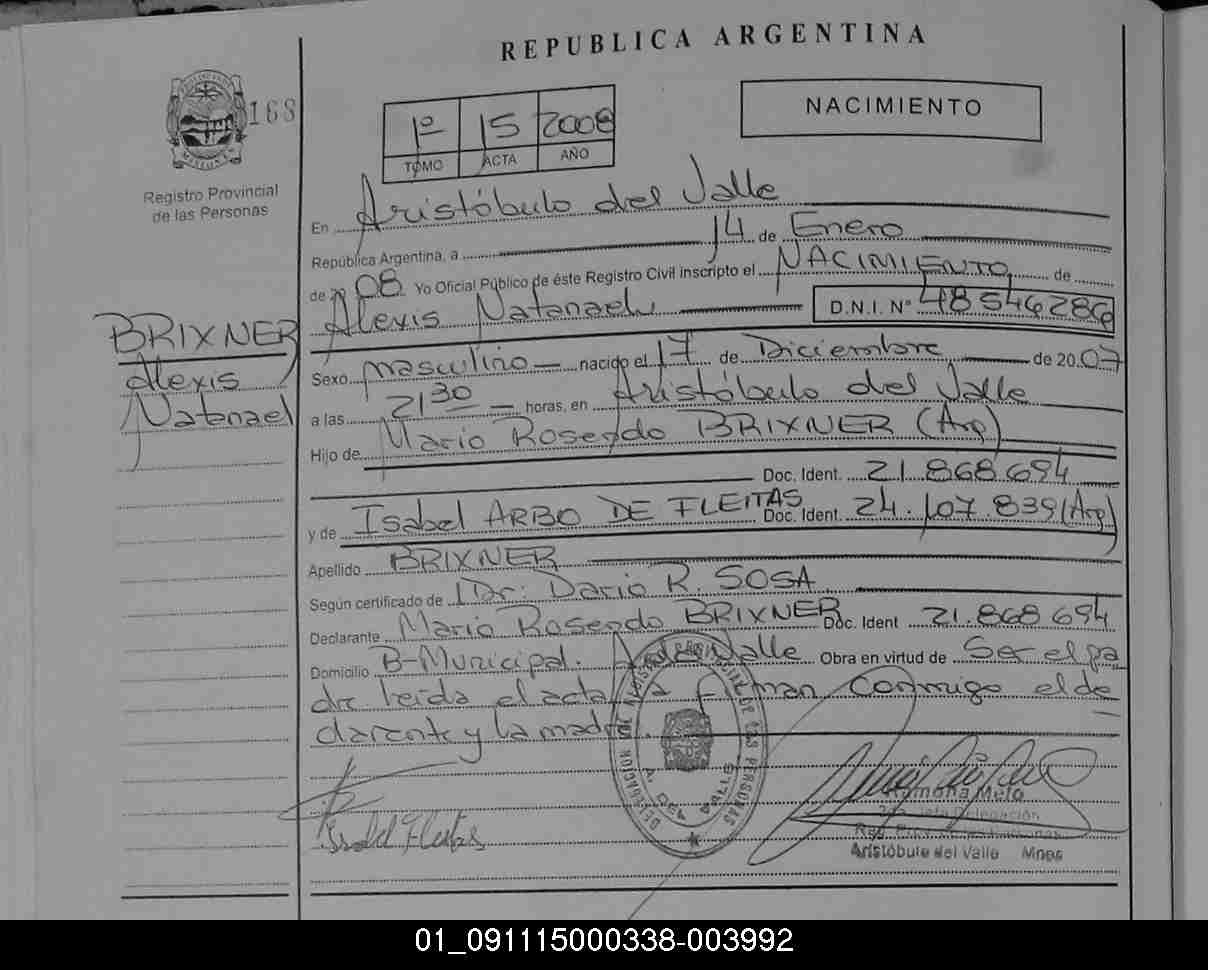 REPUBLICA ARGENTINA
168
Registro Provincial
de las Personas
1º 15 2008
TOMO ACTA AÑO
NACIMIENTO
En Aristóbulo del Valle
República Argentina, a 14 de Enero
de 2008 Yo Oficial Público de éste Registro Civil inscripto el NACIMIENTO de
Alexis Natanael D.N.I. Nº 48546286
BRIXNER
Alexis
Natanael
Sexo masculino nacido el 17 de Diciembre de 2007
a las 21 30 horas, en Aristóbulo del Valle
Hijo de Mario Rosendo BRIXNER (Arg)
Doc. Ident. 21.868.694
y de Isabel ARBO DE FLEITAS Doc. Ident. 24.107.839 (Arg)
Apellido BRIXNER
Según certificado de Dr: Dario R SOSA
Declarante Mario Rosendo BRIXNER Doc. Ident 21.868 694
Domicilio B-Municipal. Valle Obra en virtud de Ser el pa
dre leida el acta la Firman Conmigo el de
clarante y la madre.
Isabel Fleitas
DELEGACION
DE LAS PERSONAS
Ramona Melo
Delegación
Aristóbulo del Valle Mnes
01_091115000338-003992